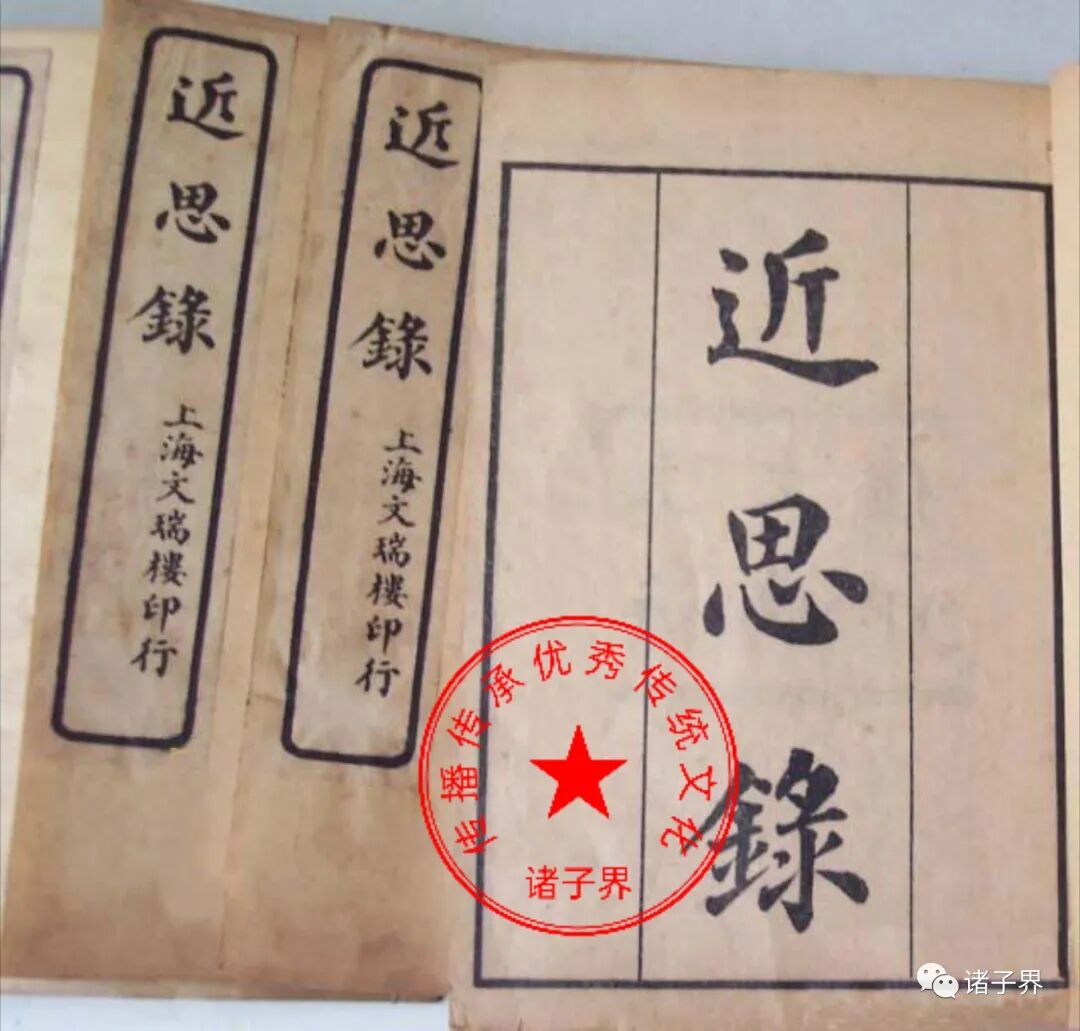 近思錄
上海文瑞樓印行
近思錄
上海文瑞樓印行
近思錄
传播传承优秀传统文化
诸子界
诸子界